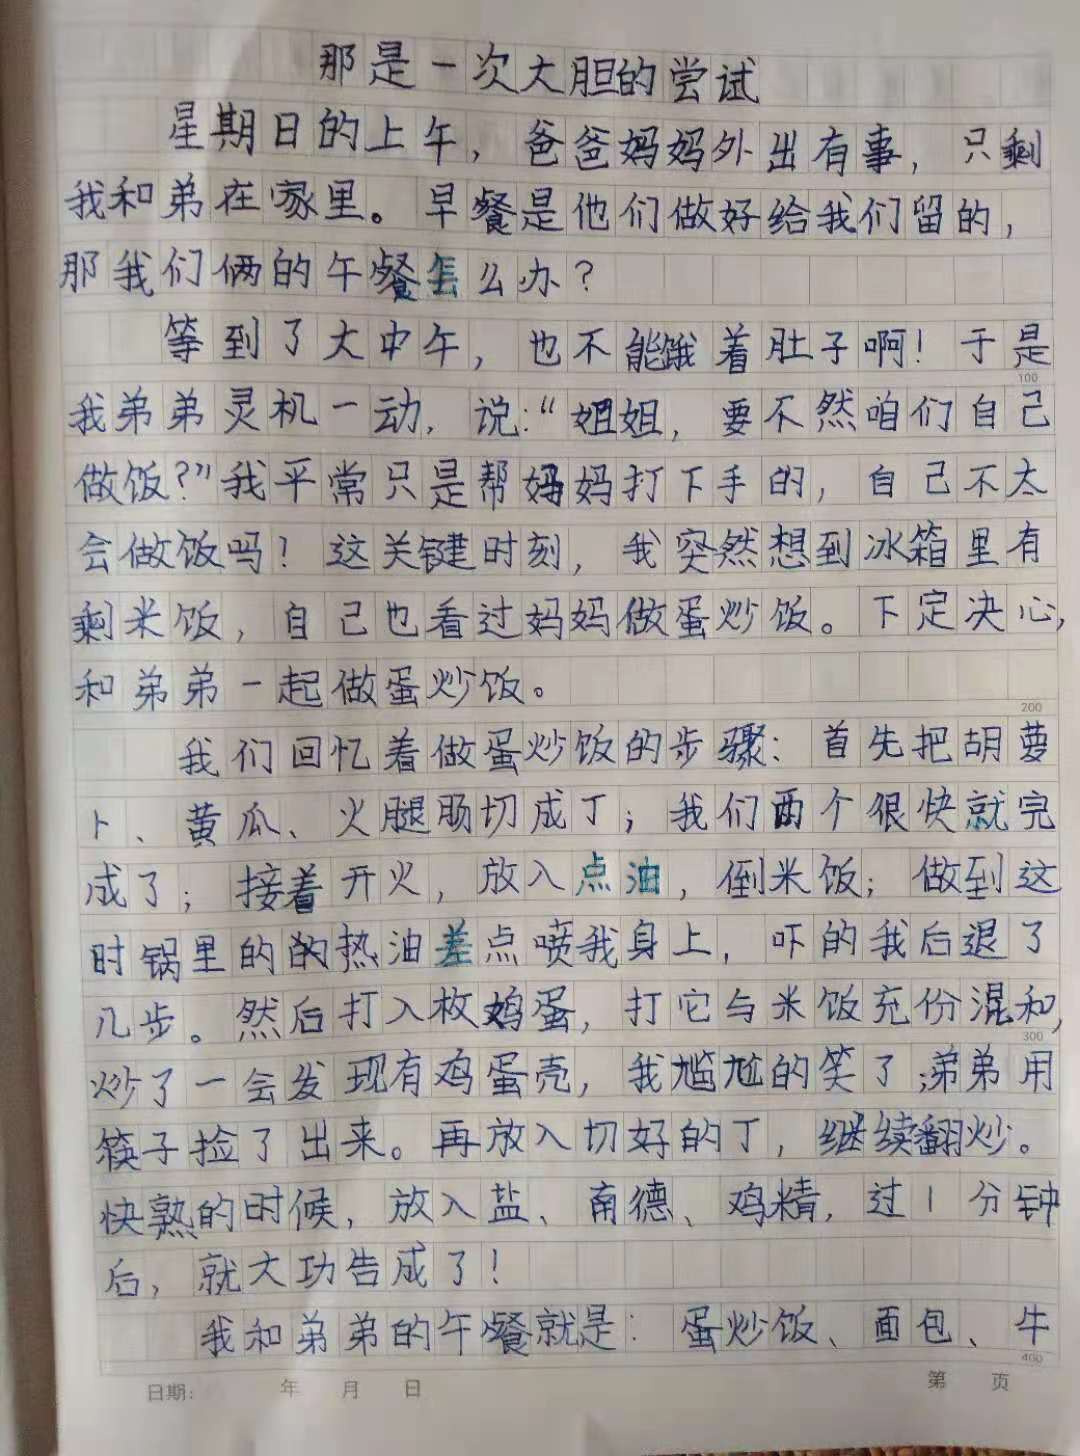 那是一次大胆的尝试
星期日的上午，爸爸妈妈外出有事，只剩
我和弟在家里。早餐是他们做好给我们留的，
那我们俩的午餐怎么办？
等到了大中午，也不能饿着肚子啊！于是
100
我弟弟灵机一动，说：“姐姐，要不然咱们自己
做饭？”我平常只是帮妈妈打下手的，自己不太
会做饭吗！这关键时刻，我突然想到冰箱里有
剩米饭，自己也看过妈妈做蛋炒饭。下定决心，
和弟弟一起做蛋炒饭。
200
我们回忆着做蛋炒饭的步骤：首先把胡萝
卜、黄瓜、火腿肠切成丁；我们两个很快就完
成了；接着开火，放入点油，倒米饭；做到这
时锅里的的热油差点喷我身上，吓的我后退了
几步。然后打入枚鸡蛋，打它与米饭充份混和，
300
炒了一会发现有鸡蛋壳，我尴尬的笑了；弟弟用
筷子捡了出来。再放入切好的丁，继续翻炒。
快熟的时候，放入盐、南德、鸡精，过1分钟
后，就大功告成了！
我和弟弟的午餐就是：蛋炒饭、面包、牛
400
日期： 年 月 日 第 页